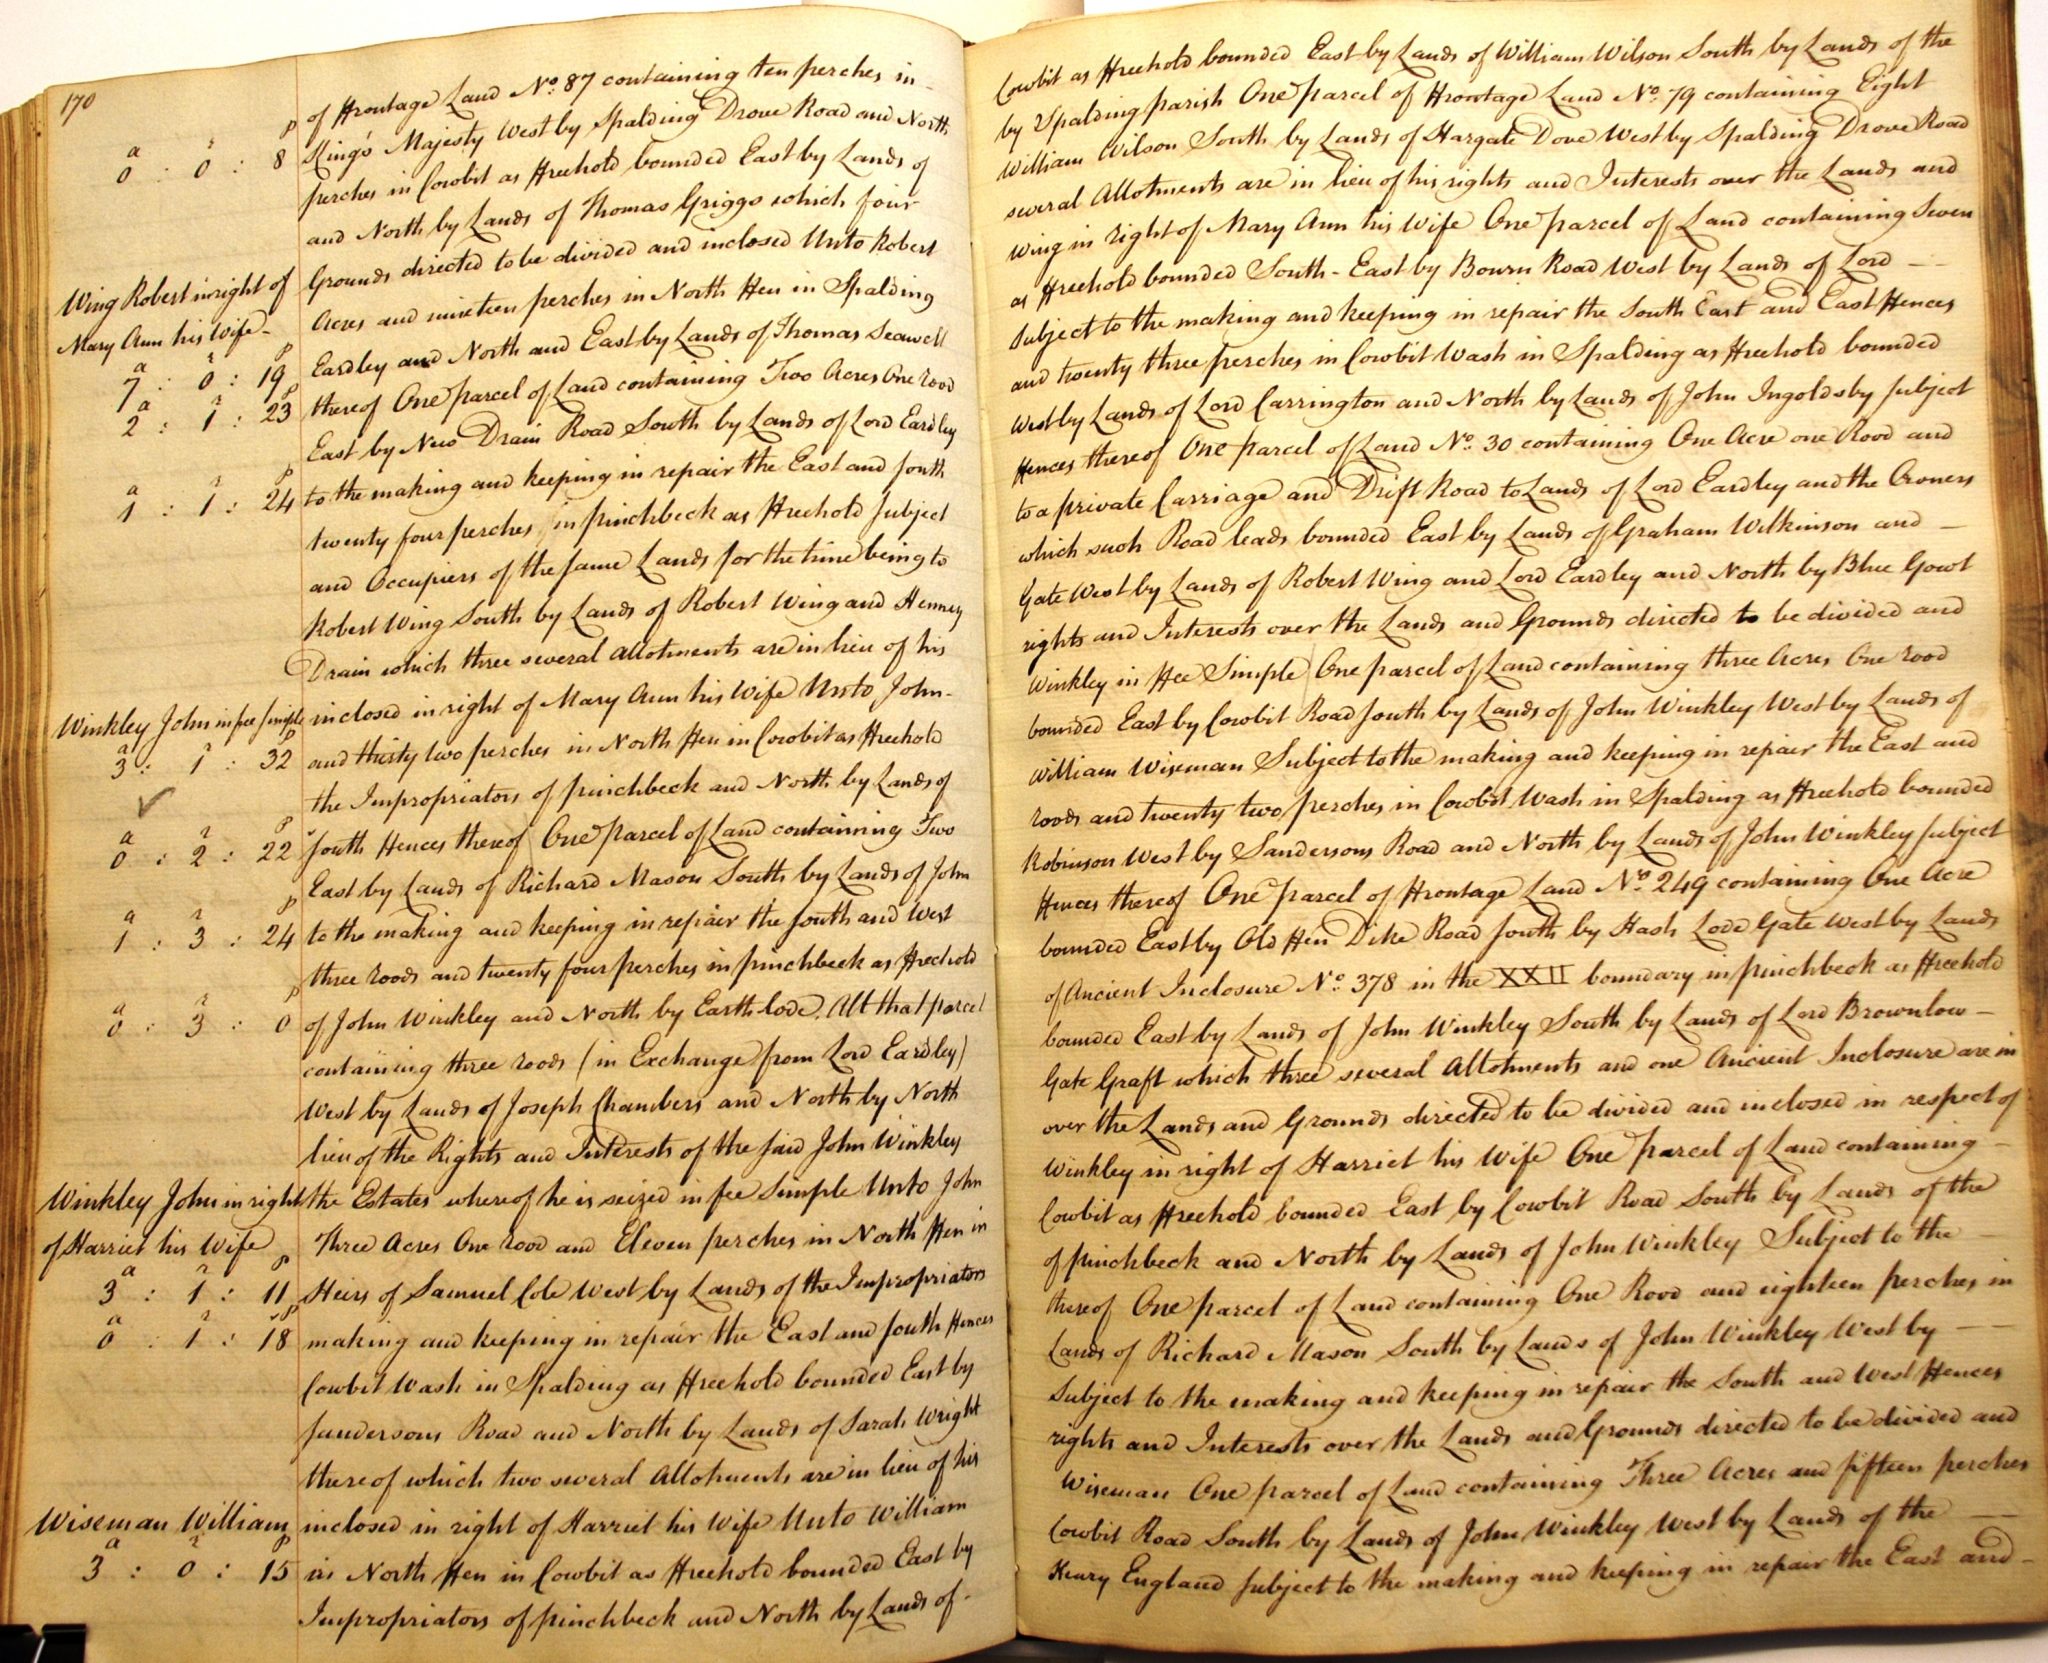 170
of Frontage Land No. 87 containing ten perches in - Cowbit as Freehold bounded East by Lands of William Wilson South by Lands of the
a r p
0 : 0 : 8
Kings Majesty West by Spalding Drove Road and North by Spalding parish One parcel of Frontage Land No. 79 containing Eight
perches in Cowbit as Freehold bounded East by Lands of William Wilson South by Lands of Hargate Dove West by Spalding Drove Road
and North by Lands of Thomas Griggs which four several Allotments are in lieu of his rights and Interests over the Lands and
Wing Robert in right of
Mary Ann his Wife -
Grounds directed to be divided and inclosed Unto Robert Wing in right of Mary Ann his Wife One parcel of Land containing Seven
a r p
7 : 0 : 19
Acres and nineteen perches in North Fen in Spalding as Freehold bounded South - East by Bourn Road West by Lands of Lord -
Eardley and North and East by Lands of Thomas Seawell Subject to the making and keeping in repair the South East and East Fences
a r p
2 : 1 : 23
thereof One parcel of Land containing Two Acres One rood and twenty three perches in Cowbit Wash in Spalding as Freehold bounded
East by New Drain Road South by Lands of Lord Eardley West by Lands of Lord Carrington and North by Lands of John Ingoldsby subject
a r p
1 : 1 : 24
to the making and keeping in repair the East and South Fences thereof One parcel of Land No. 30 containing One Acre one Rood and
twenty four perches in pinchbeck as Freehold subject to a private Carriage and Drift Road to Lands of Lord Eardley and the Owners
and Occupiers of the same Lands for the time being to which such Road leads bounded East by Lands of Graham Wilkinson and -
Robert Wing South by Lands of Robert Wing and Fenney Gate West by Lands of Robert Wing and Lord Eardley and North by Blue Gowt
Drain which three several allotments are in lieu of his rights and Interests over the Lands and Grounds directed to be divided and
Winkley John in fee simple
a r p
3 : 1 : 32
inclosed in right of Mary Ann his Wife Unto John - Winkley in Fee Simple One parcel of Land containing three Acres One rood
and thirty two perches in North Fen in Cowbit as Freehold bounded East by Cowbit Road South by Lands of John Winkley West by Lands of
the Impropriators of pinchbeck and North by Lands of William Wiseman Subject to the making and keeping in repair the East and
a r p
0 : 2 : 22
South Fences thereof One parcel of Land containing Two roods and twenty two perches in Cowbit Wash in Spalding as Freehold bounded
East by Lands of Richard Mason South by Lands of John Robinson West by Sandersons Road and North by Lands of John Winkley subject
a r p
1 : 3 : 24
to the making and keeping in repair the South and West Fences thereof One parcel of Frontage Land No. 249 containing One Acre
three roods and twenty four perches in pinchbeck as Freehold bounded East by Old Fen Dike Road South by Hash Lode Gate West by Lands
a r p
0 : 3 : 0
of John Winkley and North by Earth lode All that parcel of Ancient Inclosure No. 378 in the XXII boundary in pinchbeck as Freehold
containing three roods (in Exchange from Lord Eardley) bounded East by Lands of John Winkley South by Lands of Lord Brownlow -
West by Lands of Joseph Chambers and North by North Gate Graft which three several Allotments and one Ancient Inclosure are in
lieu of the Rights and Interests of the said John Winkley over the Lands and Grounds directed to be divided and inclosed in respect of
Winkley John in right
of Harriet his Wife
the Estates whereof he is seized in fee Simple Unto John Winkley in right of Harriet his Wife One parcel of Land containing -
a r p
3 : 1 : 11
Three Acres One rood and Eleven perches in North Fen in Cowbit as Freehold bounded East by Cowbit Road South by Lands of the
Heirs of Samuel Cole West by Lands of the Impropriators of pinchbeck and North by Lands of John Winkley Subject to the -
a r p
0 : 1 : 18
making and keeping in repair the East and South Fences thereof One parcel of Land containing One Rood and eighteen perches in
Cowbit Wash in Spalding as Freehold bounded East by Lands of Richard Mason South by Lands of John Winkley West by - -
Sandersons Road and North by Lands of Sarah Wright Subject to the making and keeping in repair the South and West Fences
thereof which two several Allotments are in lieu of his rights and Interests over the Lands and Grounds directed to be divided and
Wiseman William
a r p
3 : 0 : 15
inclosed in right of Harriet his Wife Unto William Wiseman One parcel of Land containing Three Acres and fifteen perches
in North Fen in Cowbit as Freehold bounded East by Cowbit Road South by Lands of John Winkley West by Lands of the -
Impropriators of pinchbeck and North by Lands of - Henry England subject to the making and keeping in repair the East and -